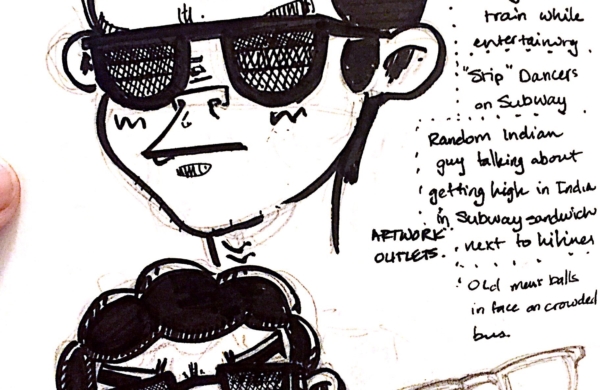 train while
entertaining
"Stip" Dancers
on Subway
Random Indian
guy talking about
getting high in India
in Subway sandwich
next to
ARTWORK
OUTLETS.
old mens balls
in face on crowded
bus.